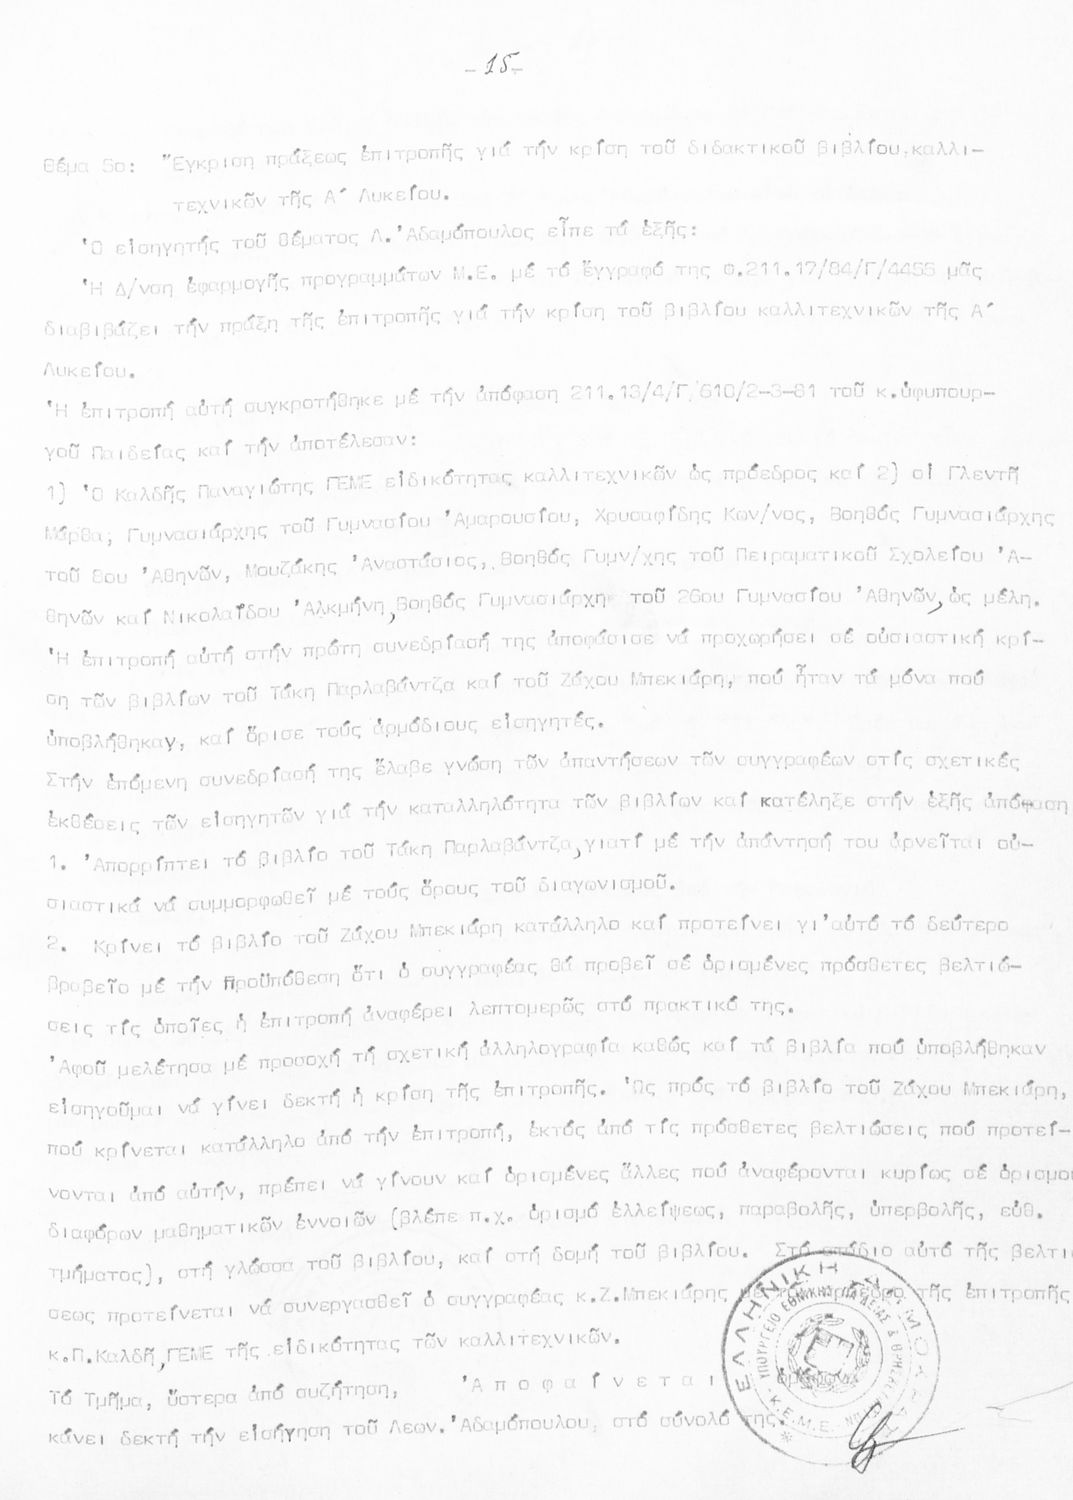 -15-
Θέμα 5ο: Ἔγκριση πράξεως ἐπιτροπῆς γιά τήν κρίση τοῦ διδακτικοῦ βιβλίου καλλι-
τεχνικῶν τῆς Α΄ Λυκείου.
Ὁ εἰσηγητής τοῦ θέματος Λ. Ἀδαμόπουλος εἶπε τά ἑξῆς:
Ἡ Δ/νση ἐφαρμογῆς προγραμμάτων Μ.Ε. μέ τό ἔγγραφό της Φ.211.17/84/Γ/4455 μᾶς
διαβιβάζει τήν πράξη τῆς ἐπιτροπῆς γιά τήν κρίση τοῦ βιβλίου καλλιτεχνικῶν τῆς Α΄
Λυκείου.
Ἡ ἐπιτροπή αὐτή συγκροτήθηκε μέ τήν ἀπόφαση 211.13/4/Γ/610/2-3-81 τοῦ κ.ὑφυπουρ-
γοῦ Παιδείας καί τήν ἀποτέλεσαν:
1) Ὁ Καλδῆς Παναγιώτης ΓΕΜΕ εἰδικότητας καλλιτεχνικῶν ὡς πρόεδρος καί 2) οἱ Γλεντῆ
Μάρθα, Γυμνασιάρχης τοῦ Γυμνασίου Ἀμαρουσίου, Χρυσαφίδης Κων/νος, Βοηθός Γυμνασιάρχης
τοῦ 8ου Ἀθηνῶν, Μουζάκης Ἀναστάσιος, Βοηθός Γυμν/χης τοῦ Πειραματικοῦ Σχολείου Ἀ-
θηνῶν καί Νικολαΐδου Ἀλκμήνη, Βοηθός Γυμνασιάρχη τοῦ 26ου Γυμνασίου Ἀθηνῶν, ὡς μέλη.
Ἡ ἐπιτροπή αὐτή στήν πρώτη συνεδρίασή της ἀποφάσισε νά προχωρήσει σέ οὐσιαστική κρί-
ση τῶν βιβλίων τοῦ Τάκη Παρλαβάντζα καί τοῦ Ζάχου Μπεκιάρη, πού ἦταν τά μόνα πού
ὑποβλήθηκαν, καί ὅρισε τούς ἁρμόδιους εἰσηγητές.
Στήν ἑπόμενη συνεδρίασή της ἔλαβε γνώση τῶν ἀπαντήσεων τῶν συγγραφέων στίς σχετικές
ἐκθέσεις τῶν εἰσηγητῶν γιά τήν καταλληλότητα τῶν βιβλίων καί κατέληξε στήν ἑξῆς ἀπόφαση
1. Ἀπορρίπτει τό βιβλίο τοῦ Τάκη Παρλαβάντζα, γιατί μέ τήν ἀπάντησή του ἀρνεῖται οὐ-
σιαστικά νά συμμορφωθεῖ μέ τούς ὅρους τοῦ διαγωνισμοῦ.
2. Κρίνει τό βιβλίο τοῦ Ζάχου Μπεκιάρη κατάλληλο καί προτείνει γι'αὐτό τό δεύτερο
βραβεῖο μέ τήν προϋπόθεση ὅτι ὁ συγγραφέας θά προβεῖ σέ ὁρισμένες πρόσθετες βελτιώ-
σεις τίς ὁποῖες ἡ ἐπιτροπή ἀναφέρει λεπτομερῶς στό πρακτικό της.
Ἀφοῦ μελέτησα μέ προσοχή τή σχετική ἀλληλογραφία καθώς καί τά βιβλία πού ὑποβλήθηκαν
εἰσηγοῦμαι νά γίνει δεκτή ἡ κρίση τῆς ἐπιτροπῆς. Ὡς πρός τό βιβλίο τοῦ Ζάχου Μπεκιάρη,
πού κρίνεται κατάλληλο ἀπό τήν ἐπιτροπή, ἐκτός ἀπό τίς πρόσθετες βελτιώσεις πού προτεί-
νονται ἀπό αὐτήν, πρέπει νά γίνουν καί ὁρισμένες ἄλλες πού ἀναφέρονται κυρίως σέ ὁρισμού
διαφόρων μαθηματικῶν ἐννοιῶν (βλέπε π.χ. ὁρισμό ἐλλείψεως, παραβολῆς, ὑπερβολῆς, εὐθ.
τμήματος), στή γλώσσα τοῦ βιβλίου, καί στή δομή τοῦ βιβλίου. Στό στάδιο αὐτό τῆς βελτιώ
σεως προτείνεται νά συνεργασθεῖ ὁ συγγραφέας κ.Ζ.Μπεκιάρης μέ τόν πρόεδρο τῆς ἐπιτροπῆς
κ.Π.Καλδῆ, ΓΕΜΕ τῆς εἰδικότητας τῶν καλλιτεχνικῶν.
Τό Τμῆμα, ὕστερα ἀπό συζήτηση, Ἀ π ο φ α ί ν ε τ α ι
κάνει δεκτή τήν εἰσήγηση τοῦ Λεων. Ἀδαμόπουλου, στό σύνολό της.
ΕΛΛΗΝΙΚΗ ΔΗΜΟΚΡΑΤΙΑ
ΥΠΟΥΡΓΕΙΟ ΕΘΝΙΚΗΣ ΠΑΙΔΕΙΑΣ & ΘΡΗΣΚ
Κ.Ε.Μ.Ε.